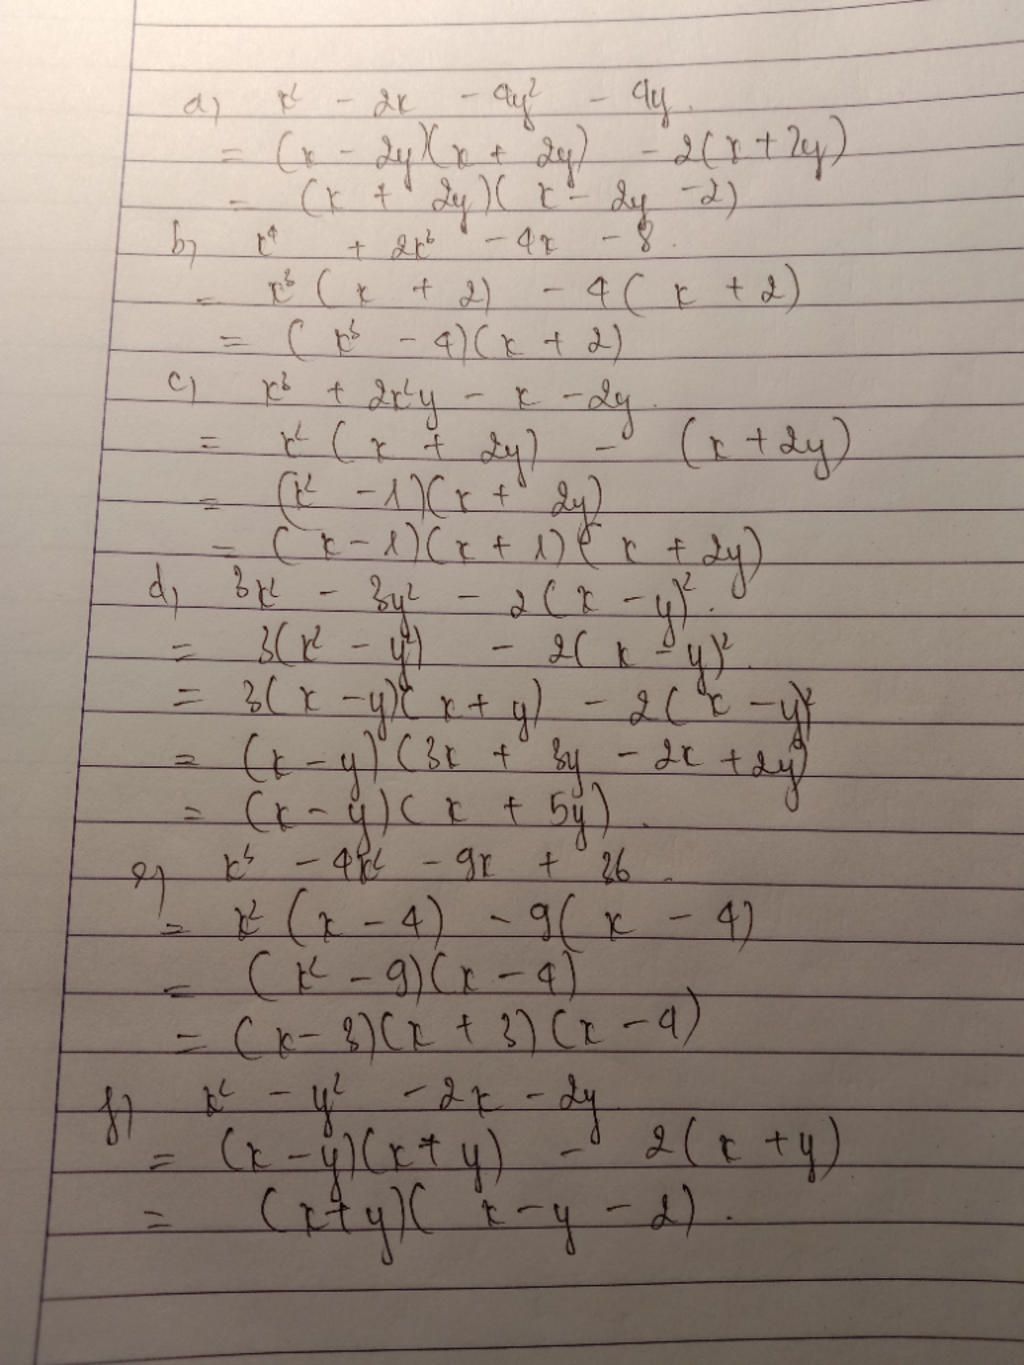 a) x² - 2x - 4y² - 4y.
= (x - 2y)(x + 2y) - 2(x + 2y)
= (x + 2y)(x - 2y - 2)
b) x⁴ + 2x³ - 4x - 8.
= x³(x + 2) - 4(x + 2)
= (x³ - 4)(x + 2)
c) x³ + 2x²y - x - 2y.
= x²(x + 2y) - (x + 2y)
= (x² - 1)(x + 2y)
= (x - 1)(x + 1)(x + 2y)
d) 3x² - 3y² - 2(x - y)².
= 3(x² - y²) - 2(x - y)².
= 3(x - y)(x + y) - 2(x - y)²
= (x - y)(3x + 3y - 2x + 2y)
= (x - y)(x + 5y).
e) x³ - 4x² - 9x + 36.
= x²(x - 4) - 9(x - 4)
= (x² - 9)(x - 4)
= (x - 3)(x + 3)(x - 4)
f) x² - y² - 2x - 2y
= (x - y)(x + y) - 2(x + y)
= (x + y)(x - y - 2).